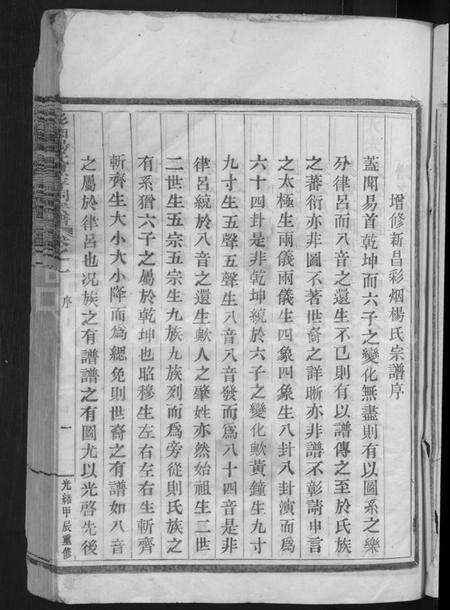 增修新昌彩烟楊氏宗譜序
蓋聞易首乾坤而六子之變化無盡則有以圖系之樂
分律呂而八音之還生不已則有以譜傳之至於氏族
之蕃衍亦非圖不著世裔之詳晰亦非譜不彰請申言
之太極生兩儀兩儀生四象四象生八卦八卦演而為
六十四卦是非乾坤統於六子之變化歟黃鐘生九寸
九寸生五聲五聲生八音八音發而為八十四音是非
律呂統於八音之還生歟人之肇姓亦然始祖生二世
二世生五宗五宗生九族九族列而為旁從則氏族之
有系猶六子之屬於乾坤也昭穆生左右左右生斬齊
斬齊生大小大小降而為緦免則世裔之有譜如八音
之屬於律呂也况族之有譜譜之有圖尤以光啓先後
序
一
光緒甲辰重修